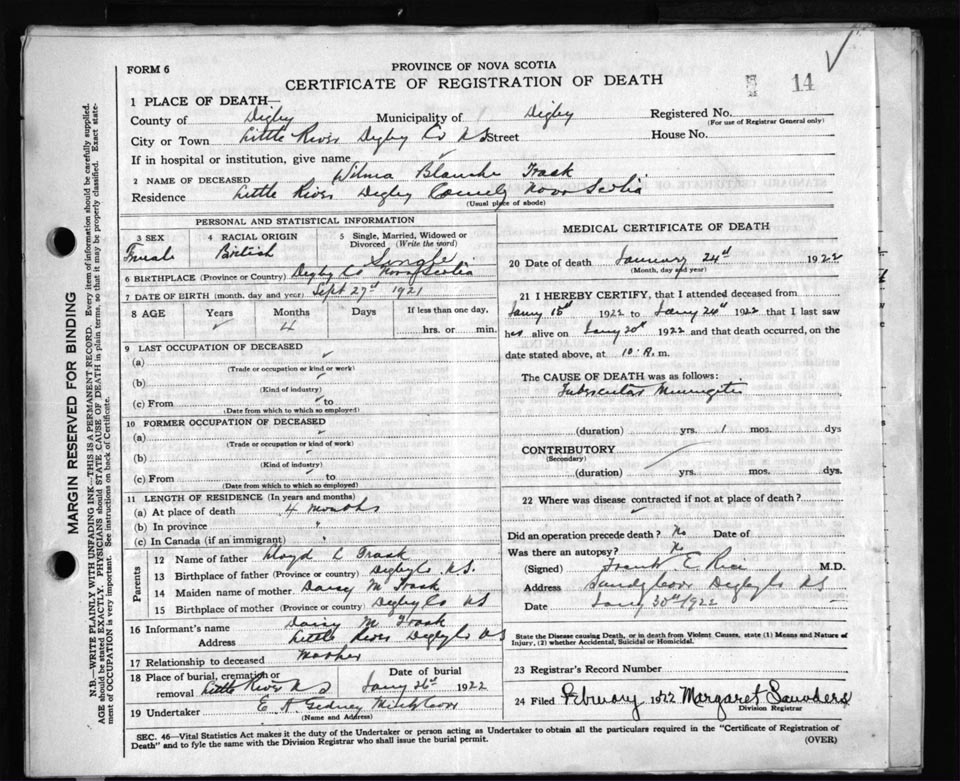 FORM 6
PROVINCE OF NOVA SCOTIA
CERTIFICATE OF REGISTRATION OF DEATH
14
1 PLACE OF DEATH—
County of Digby Municipality of Digby Registered No.
(For use of Registrar General only)
City or Town Little River Digby Co N S Street House No.
If in hospital or institution, give name
2 NAME OF DECEASED Wilma Blanche Trask
Residence Little River Digby County Nova Scotia
(Usual place of abode)
PERSONAL AND STATISTICAL INFORMATION
3 SEX 4 RACIAL ORIGIN 5 Single, Married, Widowed or Divorced (Write the word)
Female British Single
6 BIRTHPLACE (Province or Country) Digby Co Nova Scotia
7 DATE OF BIRTH (month, day and year) Sept 27th 1921
8 AGE Years Months Days If less than one day,
4 hrs. or min.
9 LAST OCCUPATION OF DECEASED
(a)
(Trade or occupation or kind or work)
(b)
(Kind of industry)
(c) From to
(Date from which to which so employed)
10 FORMER OCCUPATION OF DECEASED
(a)
(Trade or occupation or kind of work)
(b)
(Kind of industry)
(c) From to
(Date from which to which so employed)
11 LENGTH OF RESIDENCE (In years and months)
(a) At place of death 4 months
(b) In province "
(c) In Canada (if an immigrant)
Parents
12 Name of father Lloyd C Trask
13 Birthplace of father (Province or country) Digby Co N.S.
14 Maiden name of mother Daisy M Trask
15 Birthplace of mother (Province or country) Digby Co N S
16 Informant's name Daisy M Trask
Address Little River Digby Co N S
17 Relationship to deceased Mother
18 Place of burial, cremation or removal Little River N S Date of burial Jany 26th 1922
19 Undertaker E A Gidney Mink Cove
(Name and Address)
MEDICAL CERTIFICATE OF DEATH
20 Date of death January 24th 1922
(Month, day and year)
21 I HEREBY CERTIFY, that I attended deceased from
Jany 15th 1922 to Jany 24th 1922 that I last saw
her alive on Jany 20th 1922 and that death occurred, on the
date stated above, at 10 A. m.
The CAUSE OF DEATH was as follows:
Tubercular Meningitis
(duration) yrs. 1 mos. dys
CONTRIBUTORY
(Secondary)
(duration) yrs. mos. dys.
22 Where was disease contracted if not at place of death?
Did an operation precede death? No Date of
Was there an autopsy? No
(Signed) Frank E Rice M.D.
Address Sandy Cove Digby Co N S
Date Jany 30th/1922
State the Disease causing Death, or in death from Violent Causes, state (1) Means and Nature of
Injury, (2) whether Accidental, Suicidal or Homicidal.
23 Registrar's Record Number
24 Filed February 1922 Margaret Saunders
Division Registrar
SEC. 46—Vital Statistics Act makes it the duty of the Undertaker or person acting as Undertaker to obtain all the particulars required in the "Certificate of Registration of
Death" and to fyle the same with the Division Registrar who shall issue the burial permit.
(OVER)
MARGIN RESERVED FOR BINDING
N.B.—WRITE PLAINLY WITH UNFADING INK—THIS IS A PERMANENT RECORD. Every item of information should be carefully supplied.
AGE should be stated EXACTLY. PHYSICIANS should STATE CAUSE OF DEATH in plain terms, so that it may be properly classified. Exact state-
ment of OCCUPATION is very important. See instructions on back of Certificate.